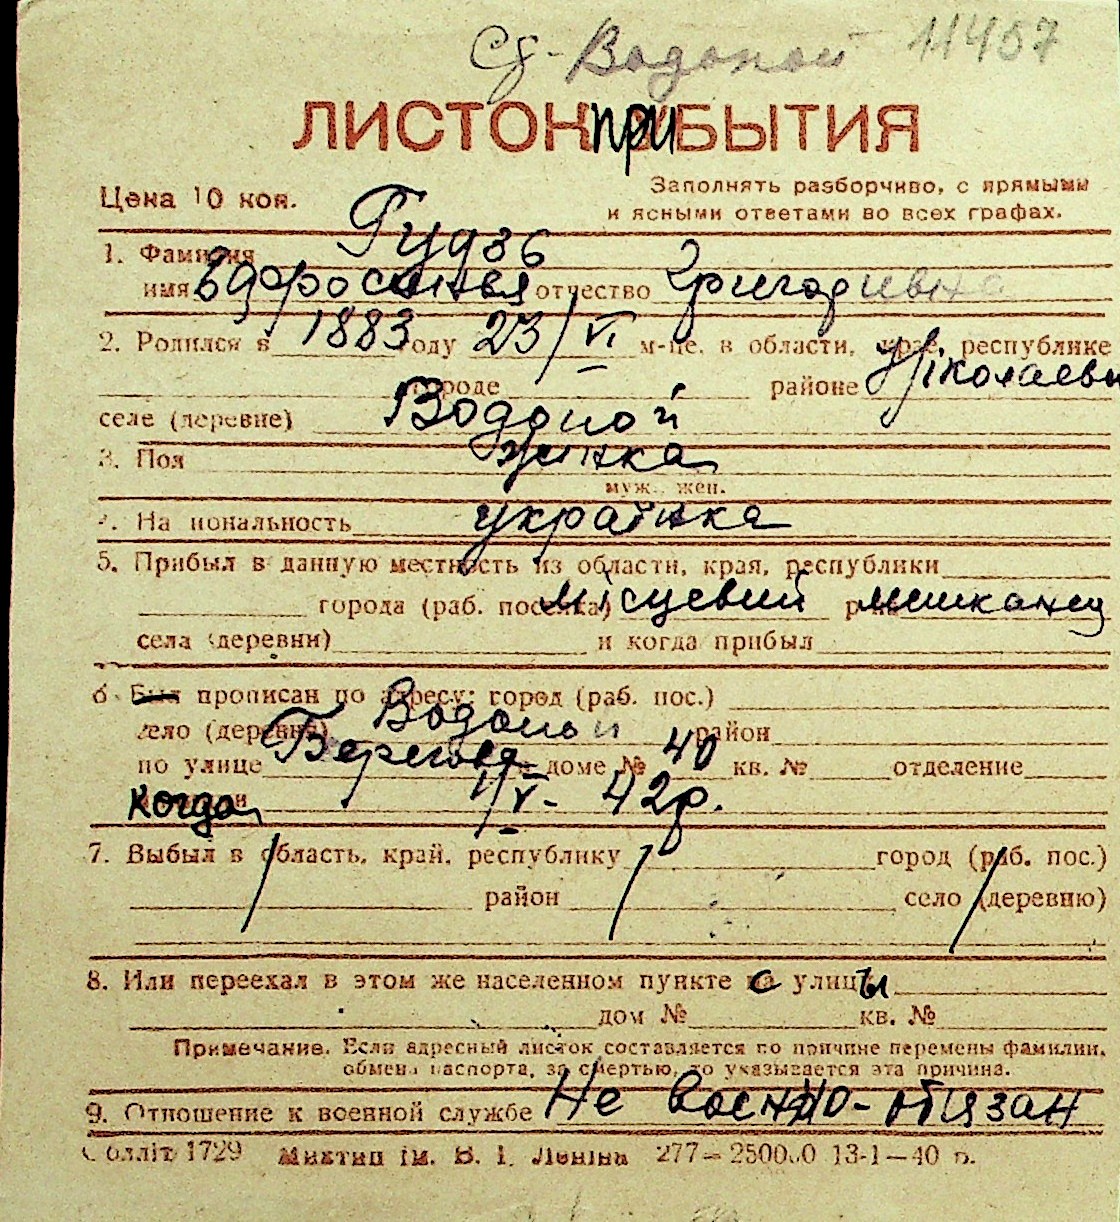 Сд-Водопой 11457
ЛИСТОК ПРИБЫТИЯ
Цена 10 коп. Заполнять разборчиво, с прямыми
и ясными ответами во всех графах.
1. Фамилия Гудзь
имя Эфросинья отчество Григориевна
2. Родился в 1883 году 23/VI м-це, в области, крае, республике
городе районе Ніколаевс
селе (деревне) Водопой
3. Пол жинка
муж. жен.
4. Национальность українка
5. Прибыл в данную местность из области, края, республики
города (раб. поселка) місцевий р-на мешканец
села (деревни) и когда прибыл
6. Был прописан по адресу: город (раб. пос.)
село (деревня) Водопой район
по улице Берегова доме № 40 кв. № отделение
когда 1/V- 42р.
7. Выбыл в область, край, республику город (раб. пос.)
район село (деревню)
8. Или переехал в этом же населенном пункте с улицы
дом № кв. №
Примечание. Если адресный листок составляется по причине перемены фамилии,
обмена паспорта, за смертью, то указывается эта причина.
9. Отношение к военной службе Не воєнно-обязан
Облліт 1729 Миктип ім. В. І. Леніна 277—250000 13-1—40 р.